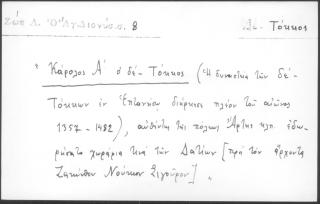 Ζώη Λ. Ὁ Ἅγ. Διονύσ. σ. 8
Τόκκος
" Κάρολος Α' ὁ δέ- Τόκκος (Ἡ δυναστεία τῶν δέ-
Τόκκων ἐν Ἑπτανήσῳ διήρκεσε πλέον τοῦ αἰῶνος
1357-1482), αὐθέντης τῆς πόλεως Ἄρτης κλπ. ἐδω-
ρήσατο χωράφια τινὰ τῶν [πρὸ τὸν ἄρχοντα
Ζακύνθου Νούκιον Σιγοῦρον] "